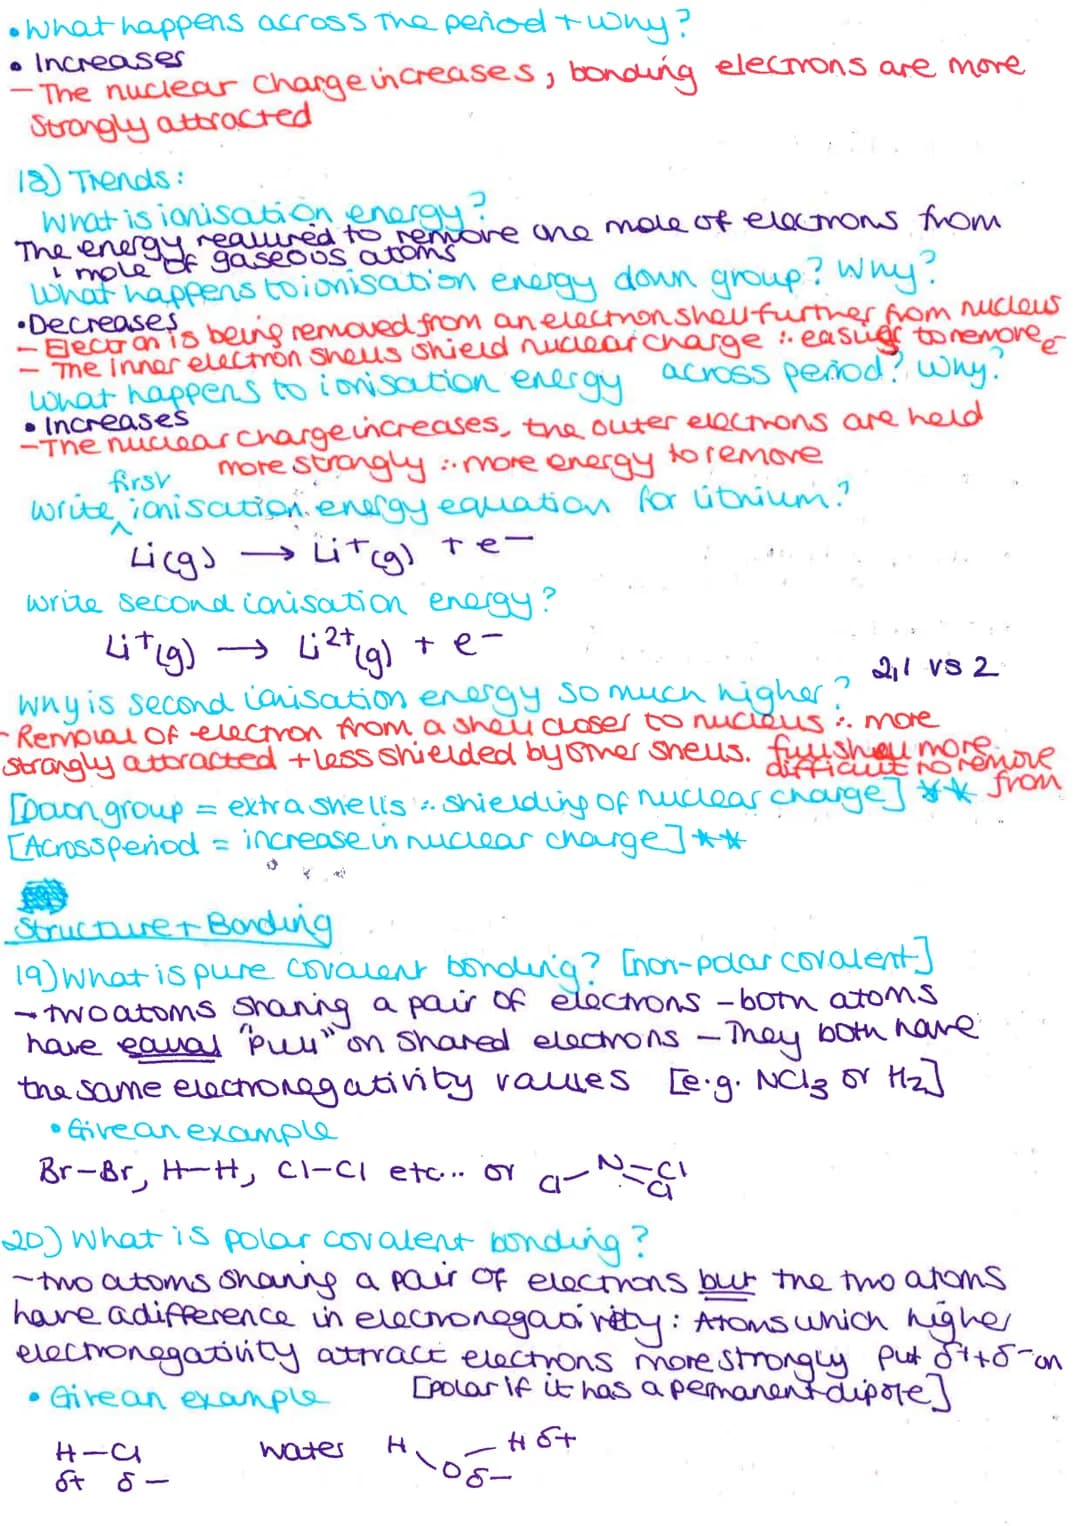 • What happens across the period + why?
• Increases
– The nuclear charge increases, bonding electrons are more
strongly attracted
18) Trends:
What is ionisation energy?
The energy required to remove one mole of electrons from
1 mole of gaseous atoms
What happens to ionisation energy down group? Why?
• Decreases
– Electron is being removed from an electron shell further from nucleus
– The inner electron shells shield nuclear charge ∴ easier to remove e
What happens to ionisation energy across period? Why?
• Increases
– The nuclear charge increases, the outer electrons are held
more strongly ∴ more energy to remove
first
Write ^ ionisation energy equation for lithium?
Li(g) → Li+(g) + e–
Write second ionisation energy?
Li+(g) → Li2+(g) + e–
2,1 vs 2
Why is second ionisation energy so much higher?
- Removal of electron from a shell closer to nucleus ∴ more
strongly attracted + less shielded by other shells. full shell more
difficult to remove
from
[Down group = extra shells ∴ shielding of nuclear charge] **
[Across period = increase in nuclear charge] **
Structure + Bonding
19) What is pure covalent bonding? [non-polar covalent]
– two atoms sharing a pair of electrons – both atoms
have equal "pull" on shared electrons – They both have
the same electronegativity values [e.g. NCl3 or H2]
• Give an example
Br–Br, H–H, Cl–Cl etc... or Cl–N–Cl
Cl
20) What is polar covalent bonding?
– two atoms sharing a pair of electrons but the two atoms
have a difference in electronegativity: Atoms which higher
electronegativity attract electrons more strongly put δ+ + δ– on
• Give an example [polar if it has a permanent dipole]
H–Cl water H O H δ+
δ+ δ– δ–